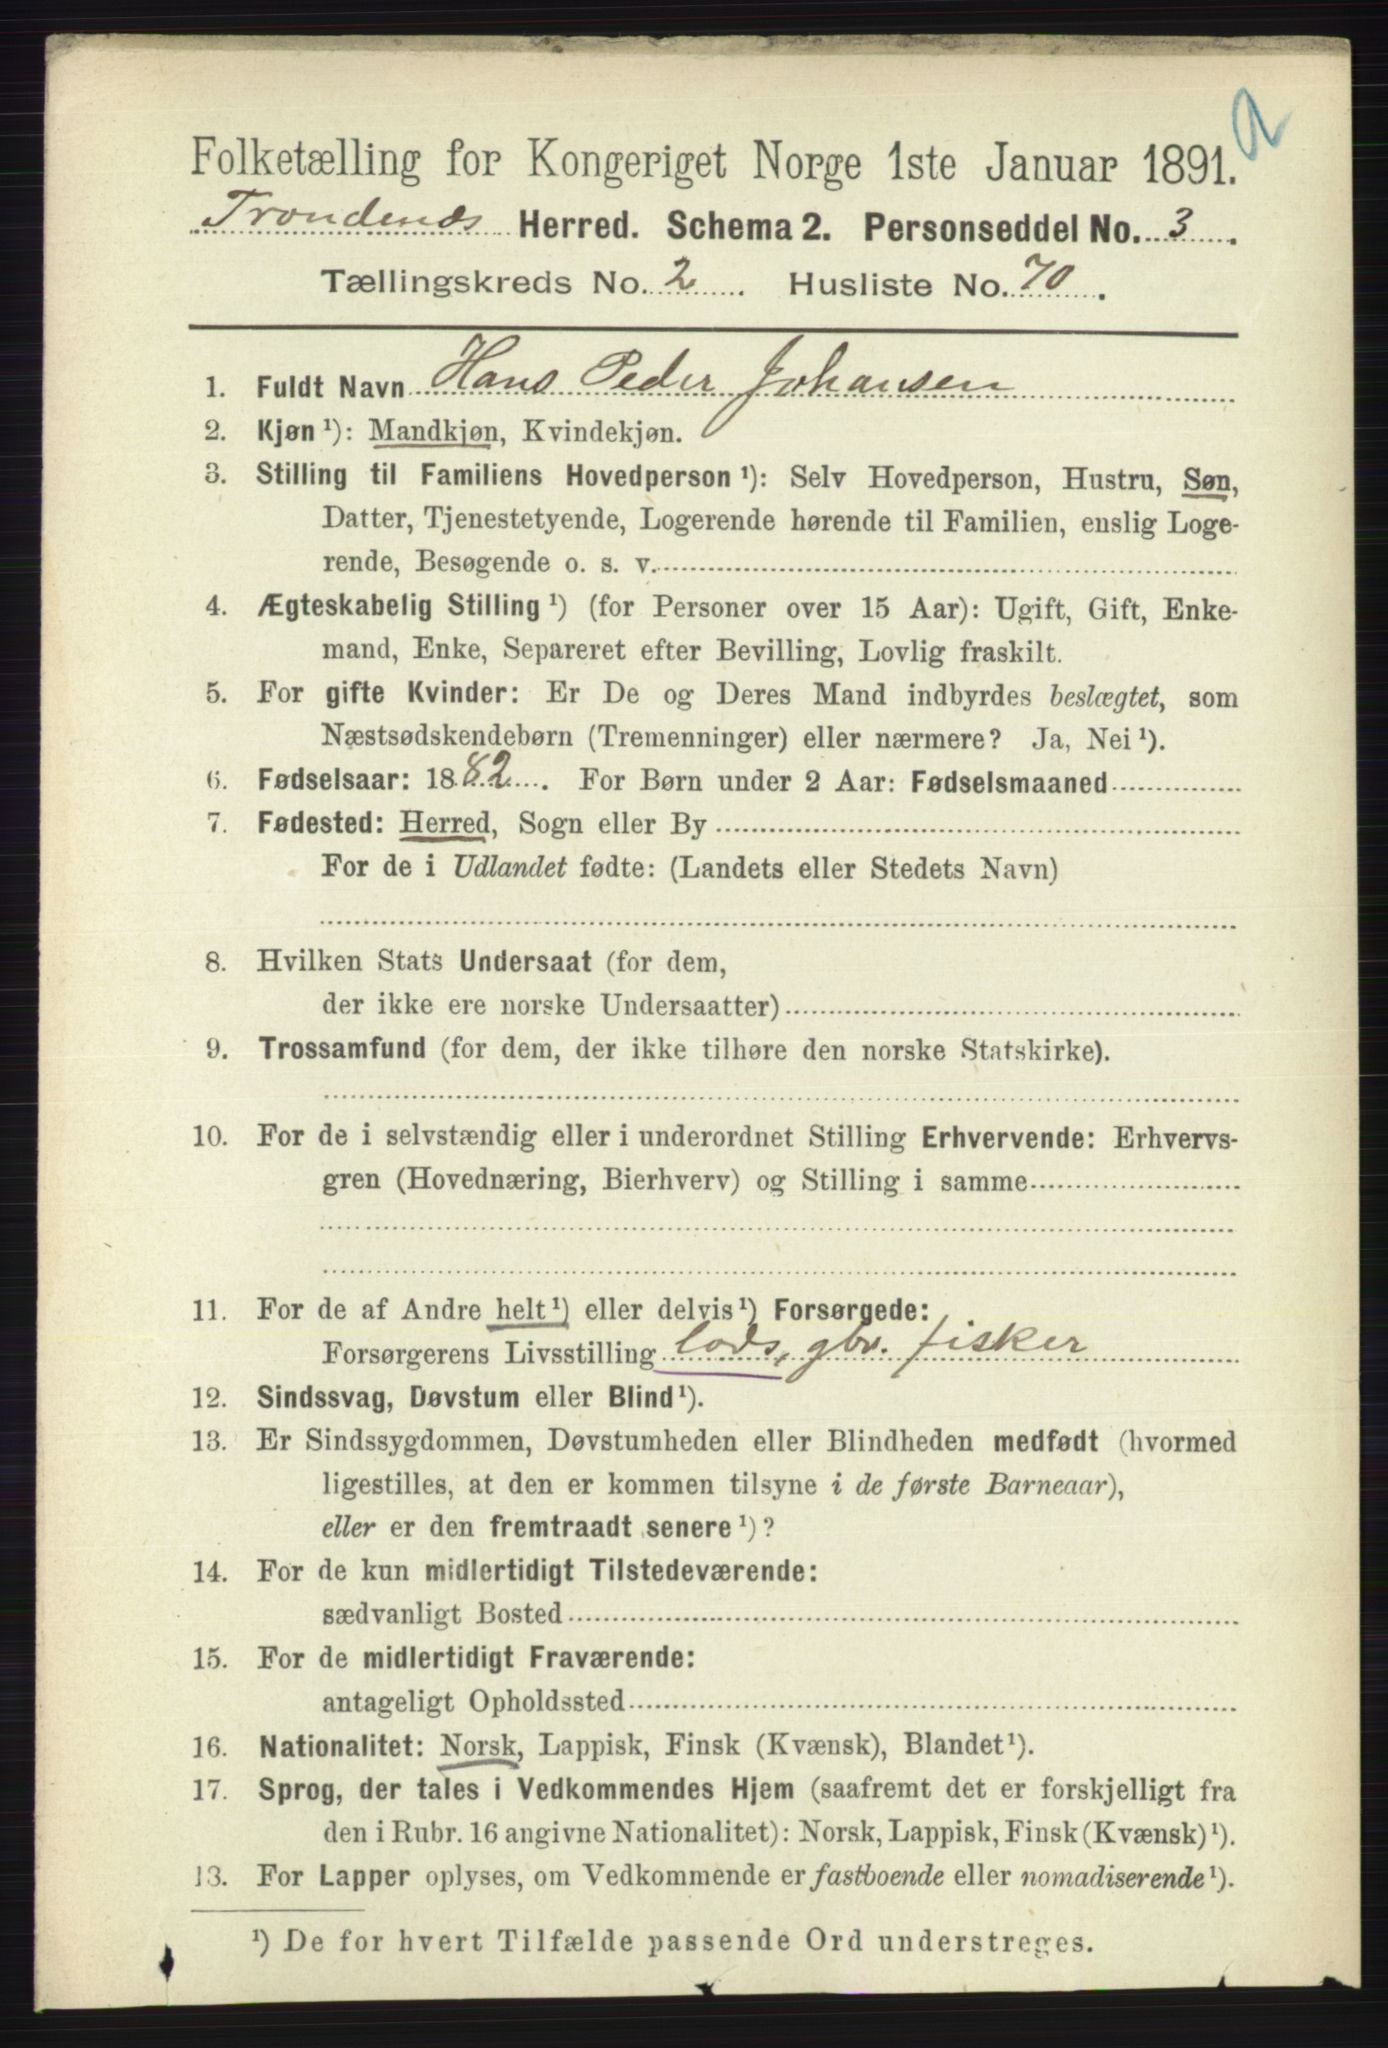 Folketælling for Kongeriget Norge 1ste Januar 1891.
Trondenæs Herred. Schema 2. Personseddel No. 3.
Tællingskreds No. 2. Husliste No. 70.
1. Fuldt Navn Hans Peder Johansen
2. Kjøn ¹): Mandkjøn, Kvindekjøn.
3. Stilling til Familiens Hovedperson ¹): Selv Hovedperson, Hustru, Søn,
Datter, Tjenestetyende, Logerende hørende til Familien, enslig Loge-
rende, Besøgende o. s. v.
4. Ægteskabelig Stilling ¹) (for Personer over 15 Aar): Ugift, Gift, Enke-
mand, Enke, Separeret efter Bevilling, Lovlig fraskilt.
5. For gifte Kvinder: Er De og Deres Mand indbyrdes beslægtet, som
Næstsødskendebørn (Tremenninger) eller nærmere? Ja, Nei ¹).
6. Fødselsaar: 1882. For Børn under 2 Aar: Fødselsmaaned
7. Fødested: Herred, Sogn eller By
For de i Udlandet fødte: (Landets eller Stedets Navn)
8. Hvilken Stats Undersaat (for dem,
der ikke ere norske Undersaatter)
9. Trossamfund (for dem, der ikke tilhøre den norske Statskirke).
10. For de i selvstændig eller i underordnet Stilling Erhvervende: Erhvervs-
gren (Hovednæring, Bierhverv) og Stilling i samme
11. For de af Andre helt ¹) eller delvis ¹) Forsørgede:
Forsørgerens Livsstilling lods, gbr. fisker
12. Sindssvag, Døvstum eller Blind ¹).
13. Er Sindssygdommen, Døvstumheden eller Blindheden medfødt (hvormed
ligestilles, at den er kommen tilsyne i de første Barneaar),
eller er den fremtraadt senere ¹)?
14. For de kun midlertidigt Tilstedeværende:
sædvanligt Bosted
15. For de midlertidigt Fraværende:
antageligt Opholdssted
16. Nationalitet: Norsk, Lappisk, Finsk (Kvænsk), Blandet ¹).
17. Sprog, der tales i Vedkommendes Hjem (saafremt det er forskjelligt fra
den i Rubr. 16 angivne Nationalitet): Norsk, Lappisk, Finsk (Kvænsk) ¹).
13. For Lapper oplyses, om Vedkommende er fastboende eller nomadiserende ¹).
¹) De for hvert Tilfælde passende Ord understreges.